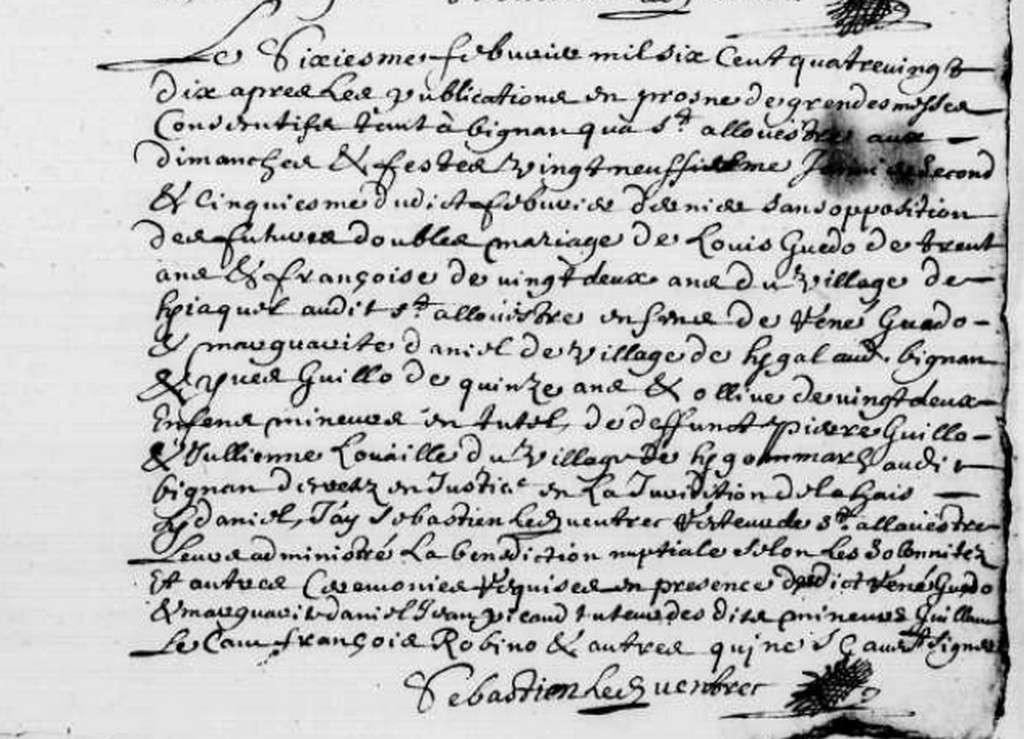 Le Sixiesme febuvrie mil six Cent quatrevingt
dix apres Les publications en prosne de grendes messes
Consecutifs tant à bignan qua st allouestre aux
dimanches & festes vingt neuffsiesme Second
& Cinquiesme dudict febuvrie dernier sans opposition
des futures doubles mariage de Louis Guedo de trent
ans & françoise de vingt deux ans du village de
audit st allouestre enfens de René Guedo
& marguarite daniel de village de bignan
& yves Guillo de quinze ans & ollive de vingt deux
Enfens mineurs en tutel, de deffunct Pierre Guillo
& Jullienne Louaille du village de audit
bignan en Justice en La Juridition de la hais
daniel, Jay Sebastien Lequentrec Recteur de st allouestre
Leurs administré La benediction nuptiale selon Les Solennitez
Et autres Ceremonies Requises en presence dudict René Guedo
& marguarit daniel Jvan picaud tuteur des dits mineurs Guillam
Le Cam françois Robino & autres qui ne Scavent signer
Sebastien Lequentrec